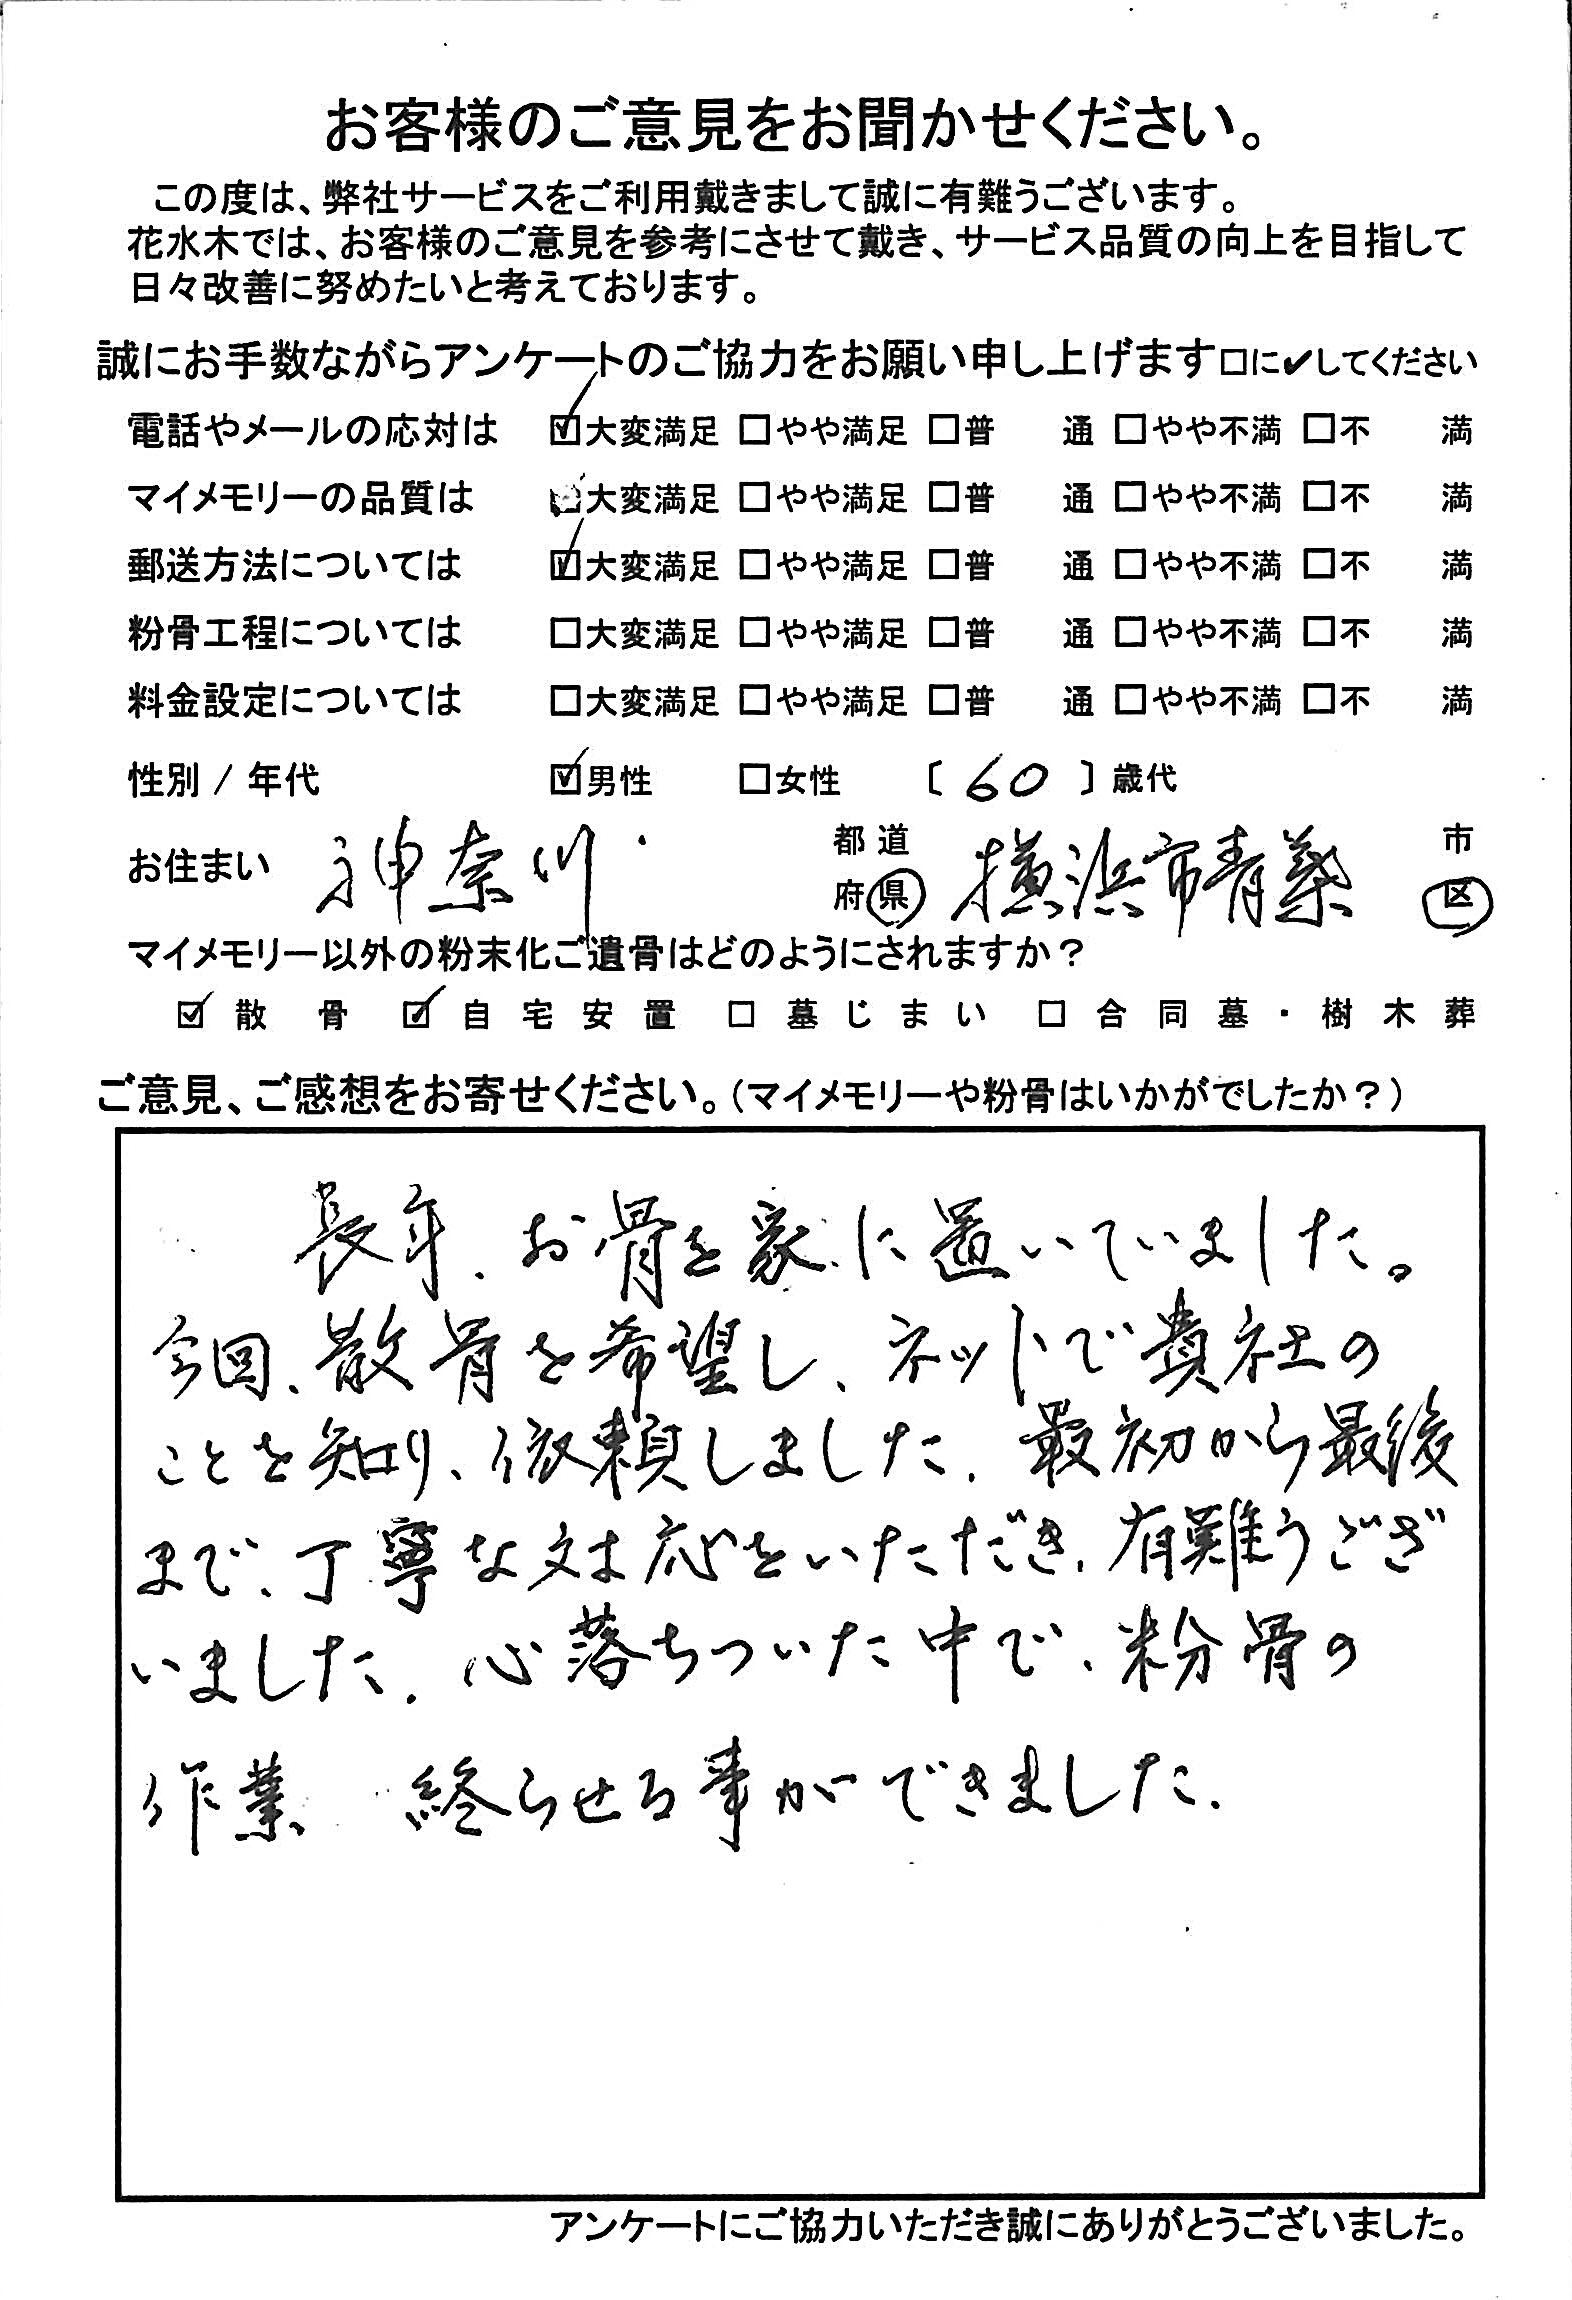 お客様のご意見をお聞かせください。
この度は、弊社サービスをご利用戴きまして誠に有難うございます。
花水木では、お客様のご意見を参考にさせて戴き、サービス品質の向上を目指して
日々改善に努めたいと考えております。
誠にお手数ながらアンケートのご協力をお願い申し上げます□に✔してください
電話やメールの応対は ☑大変満足 □やや満足 □普 通 □やや不満 □不 満
マイメモリーの品質は □大変満足 □やや満足 □普 通 □やや不満 □不 満
郵送方法については ☑大変満足 □やや満足 □普 通 □やや不満 □不 満
粉骨工程については □大変満足 □やや満足 □普 通 □やや不満 □不 満
料金設定については □大変満足 □やや満足 □普 通 □やや不満 □不 満
性別 / 年代 ☑男性 □女性 〔 60 〕歳代
お住まい 神奈川 都道府県 横浜市青葉 市区
マイメモリー以外の粉末化ご遺骨はどのようにされますか？
☑ 散骨 ☑ 自宅安置 □ 墓じまい □ 合同墓・樹木葬
ご意見、ご感想をお寄せください。（マイメモリーや粉骨はいかがでしたか？）
長年、お骨を家に置いていました。
今回、散骨を希望し、ネットで貴社の
ことを知り、依頼しました。最初から最後
まで、丁寧な対応をいただき、有難うござ
いました。心落ちついた中で、粉骨の
作業 終らせる事ができました。
アンケートにご協力いただき誠にありがとうございました。